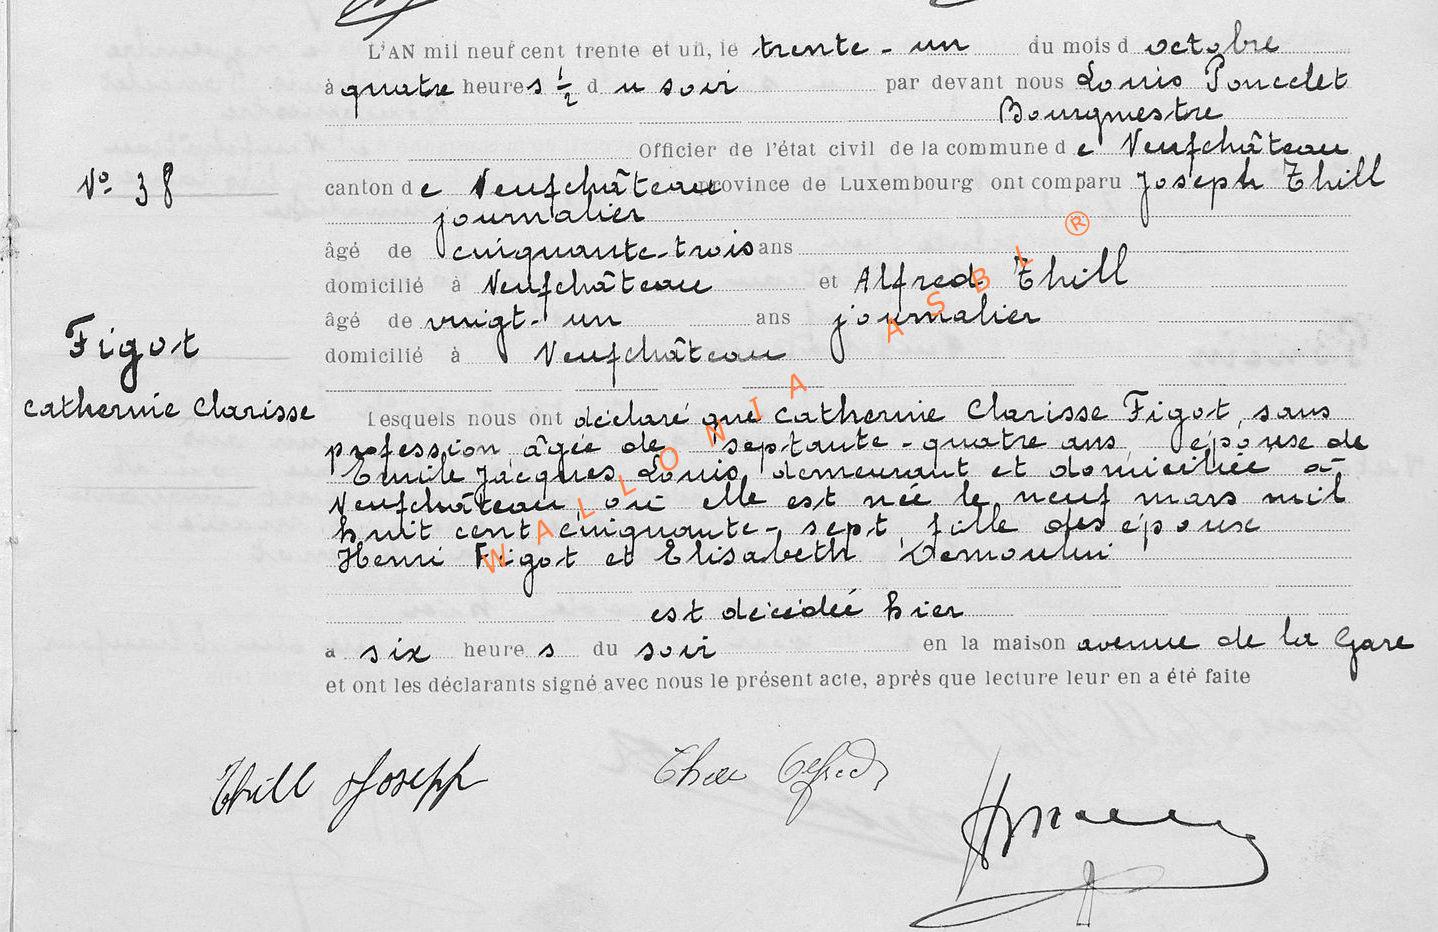 L'AN mil neuf cent trente et un, le trente-un du mois d octobre
à quatre heures ½ du soir par devant nous Louis Poncelet
Bourgmestre
Officier de l'état civil de la commune de Neufchâteau
N° 38
canton de Neufchâteau province de Luxembourg ont comparu Joseph Thill
journalier
âgé de cinquante-trois ans
domicilié à Neufchâteau et Alfred Thill
âgé de vingt-un ans journalier
domicilié à Neufchâteau
Figot
Catherine Clarisse
Lesquels nous ont déclaré que Catherine Clarisse Figot, sans
profession âgée de septante-quatre ans, épouse de
Emile Jacques Louis, demeurant et domiciliée à
Neufchâteau, où elle est née le neuf mars mil
huit cent cinquante-sept, fille des époux
Henri Figot et Elisabeth Demoulin
est décédée hier
a six heures du soir en la maison avenue de la Gare
et ont les déclarants signé avec nous le présent acte, après que lecture leur en a été faite
Thill Joseph Thill Alfred
WALLONIA ASBL ®